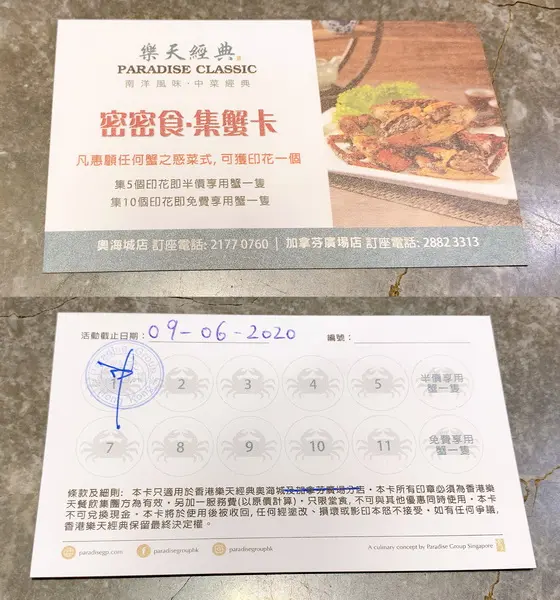 樂天經典
PARADISE CLASSIC
南洋風味・中菜經典
密密食・集蟹卡
凡惠顧任何蟹之惑菜式,可獲印花一個
集5個印花即半價享用蟹一隻
集10個印花即免費享用蟹一隻
奧海城店 訂座電話: 2177 0760 | 加拿芬廣場店 訂座電話: 2882 3313
活動截止日期: 09-06-2020 編號:
1 2 3 4 5 半價享用
蟹一隻
7 8 9 10 11 免費享用
蟹一隻
條款及細則: 本卡只適用於香港樂天經典奧海城及加拿芬廣場分店。本卡所有印章必須為香港樂
天餐飲集團方為有效。另加一服務費(以原價計算)。只限堂食, 不可與其他優惠同時使用。本卡
不可兌換現金。本卡將於使用後被收回, 任何經塗改、損壞或影印本恕不接受。如有任何爭議,
香港樂天經典保留最終決定權。
paradisejgn.com paradisegrouphk paradisegrouphk A culinary concept by Paradise Group Singapore